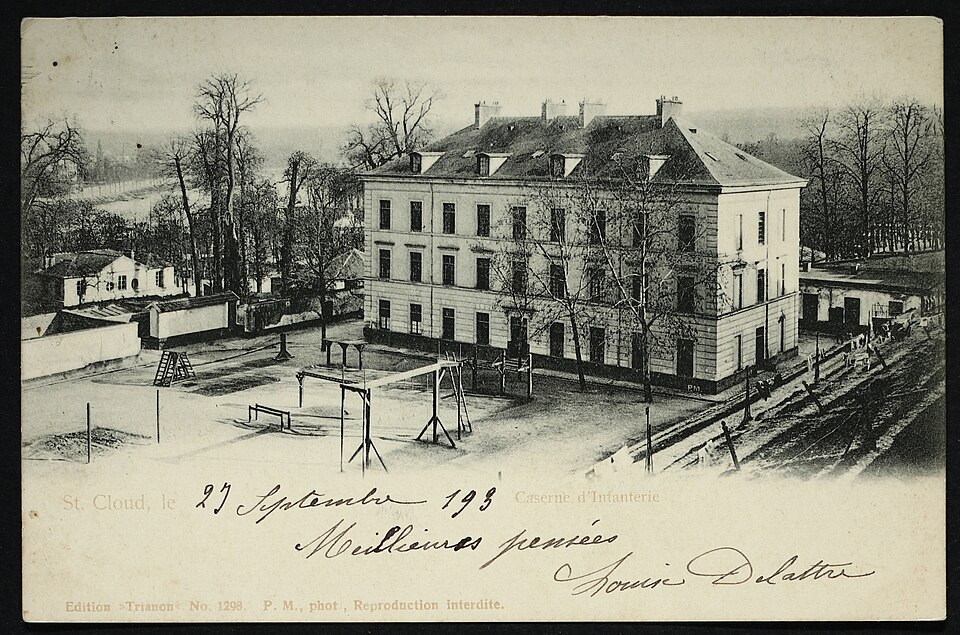 PM
St. Cloud, le 27 Septembre 193
Caserne d'Infanterie
Meillieures pensées
Louise Delattre
Edition »Trianon« No. 1298. P. M., phot., Reproduction interdite.